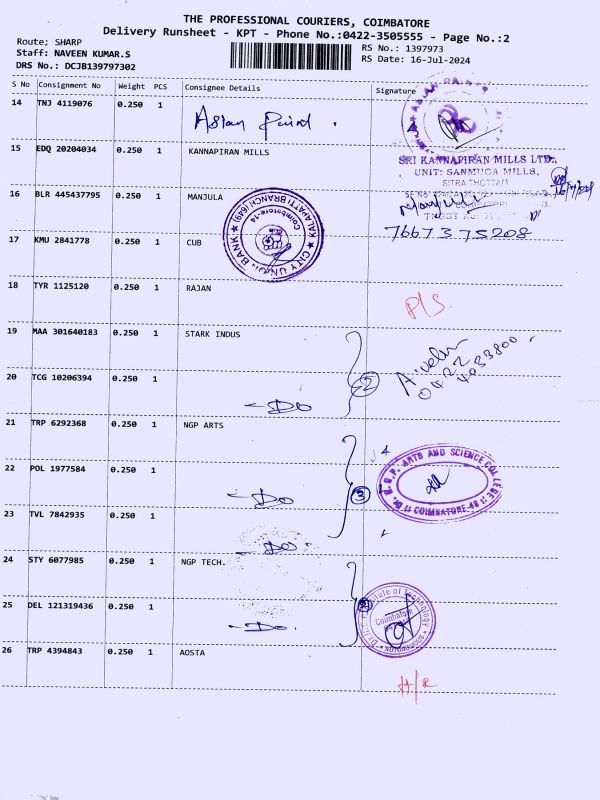 THE PROFESSIONAL COURIERS, COIMBATORE
Delivery Runsheet - KPT - Phone No.:0422-3505555 - Page No.:2
Route; SHARP
Staff: NAVEEN KUMAR.S
DRS No.: DCJB139797302
RS No.: 1397973
RS Date: 16-Jul-2024
S No Consignment No Weight PCS Consignee Details Signature
14 TNJ 4119076 0.250 1 Asian Paint .
15 EDQ 20204034 0.250 1 KANNAPIRAN MILLS
SRI KANNAPIRAN MILLS LTD.,
UNIT: SANMUGA MILLS,
SITRA THOTTAM
16 BLR 445437795 0.250 1 MANJULA
7667375208
CITY UNION BANK
KALAPATTI BRANCH (649)
Coimbatore-14
17 KMU 2841778 0.250 1 CUB
18 TYR 1125120 0.250 1 RAJAN
P/S
19 MAA 301640183 0.250 1 STARK INDUS
0422
4033800
20 TCG 10206394 0.250 1 -DO 2
21 TRP 6292368 0.250 1 NGP ARTS
Dr. N.G.P. ARTS AND SCIENCE COLLEGE
COIMBATORE-48
22 POL 1977584 0.250 1 -DO 3
23 TVL 7842935 0.250 1 -DO.
24 STY 6077985 0.250 1 NGP TECH.
Institute of Technology
Coimbatore
AUTONOMOUS
25 DEL 121319436 0.250 1 -DO.
26 TRP 4394843 0.250 1 AOSTA
H/R